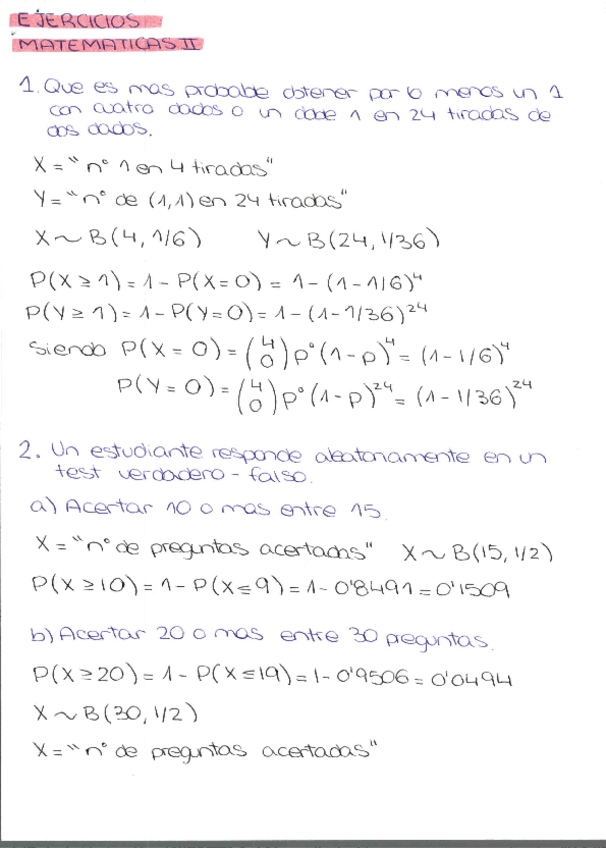 EJERCICIOS
MATEMATICAS II
1. Que es mas probable obtener por lo menos un 1
con cuatro dados o un doble 1 en 24 tiradas de
dos dados.
X = "nº 1 en 4 tiradas"
Y = "nº de (1,1) en 24 tiradas"
X ~ B(4, 1/6) Y ~ B(24, 1/36)
P(X ≥ 1) = 1 - P(X = 0) = 1 - (1 - 1/6)⁴
P(Y ≥ 1) = 1 - P(Y = 0) = 1 - (1 - 1/36)²⁴
Siendo P(X = 0) = (4 0) p⁰ (1 - p)⁴ = (1 - 1/6)⁴
P(Y = 0) = (4 0) p⁰ (1 - p)²⁴ = (1 - 1/36)²⁴
2. Un estudiante responde aleatoriamente en un
test verdadero - falso.
a) Acertar 10 o mas entre 15.
X = "nº de preguntas acertadas" X ~ B(15, 1/2)
P(X ≥ 10) = 1 - P(X ≤ 9) = 1 - 0'8491 = 0'1509
b) Acertar 20 o mas entre 30 preguntas.
P(X ≥ 20) = 1 - P(X ≤ 19) = 1 - 0'9506 = 0'0494
X ~ B(30, 1/2)
X = "nº de preguntas acertadas"